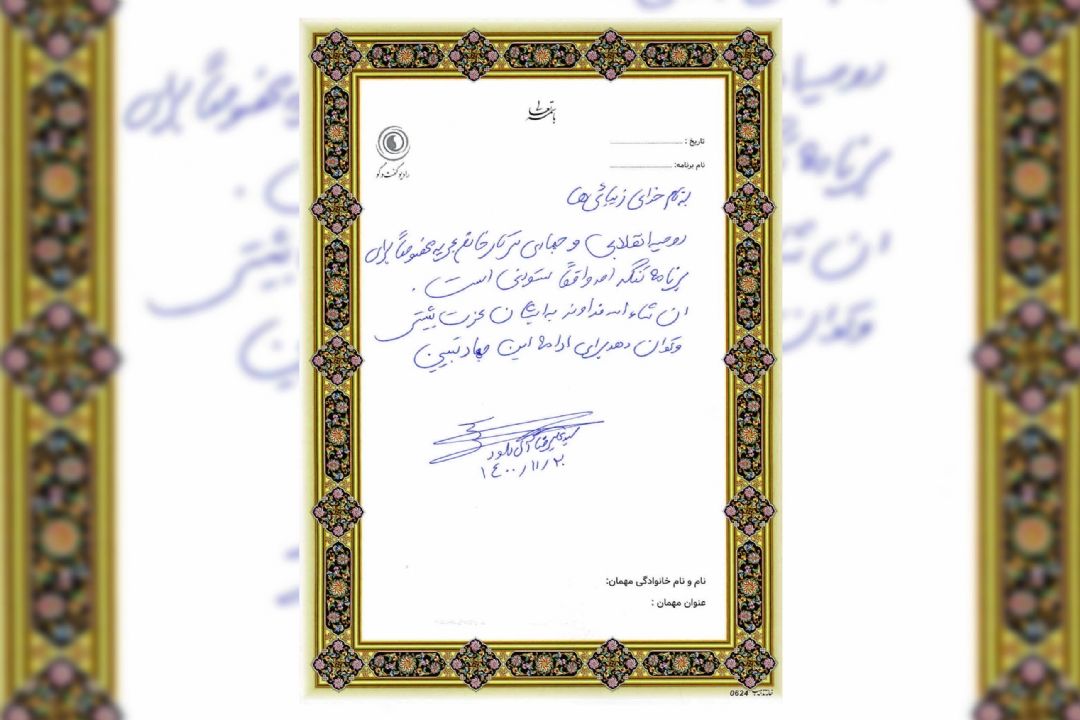 باسمه تعالی
رادیو گفت‌وگو
تاریخ : ....................
نام برنامه: ....................
بنام خدای زیبائی ها
روحیه انقلابی و جهادی سرکار خانم مخصوصاً برای
برنامه کنگره واقعاً ستودنی است .
ان شاء الله خداوند به ایشان عزت بیشتر
و توان دهد برای ادامه این جهاد تبیین
سید علیرضا آل داود
۱۴۰۰/۱۱/۲۰
نام و نام خانوادگی مهمان:
عنوان مهمان :
0624